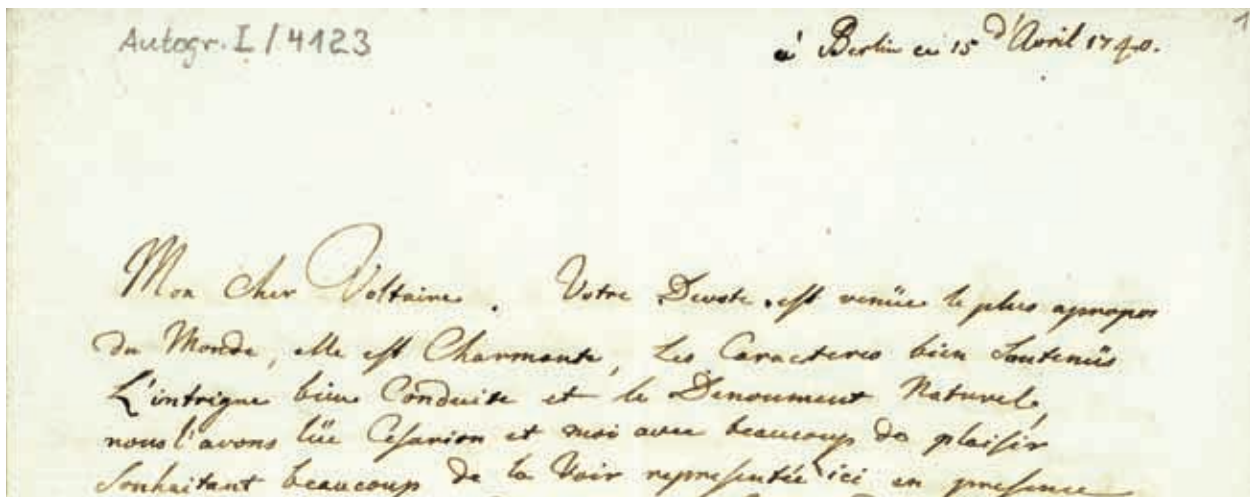 Autogr. I / 4123
1
a Berlin ce 15 d'Avril 1740.
Mon cher Voltaire. Votre Devote est venüe le plus apropos
du Monde, elle est Charmante, les Caracteres bien Soutenüs
L'intrigue bien Conduite et le Denoument Naturel,
nous l'avons lüe Cesarion et moi avec beaucoup de plaisir
Souhaitant beaucoup de la Voir representée ici en presence